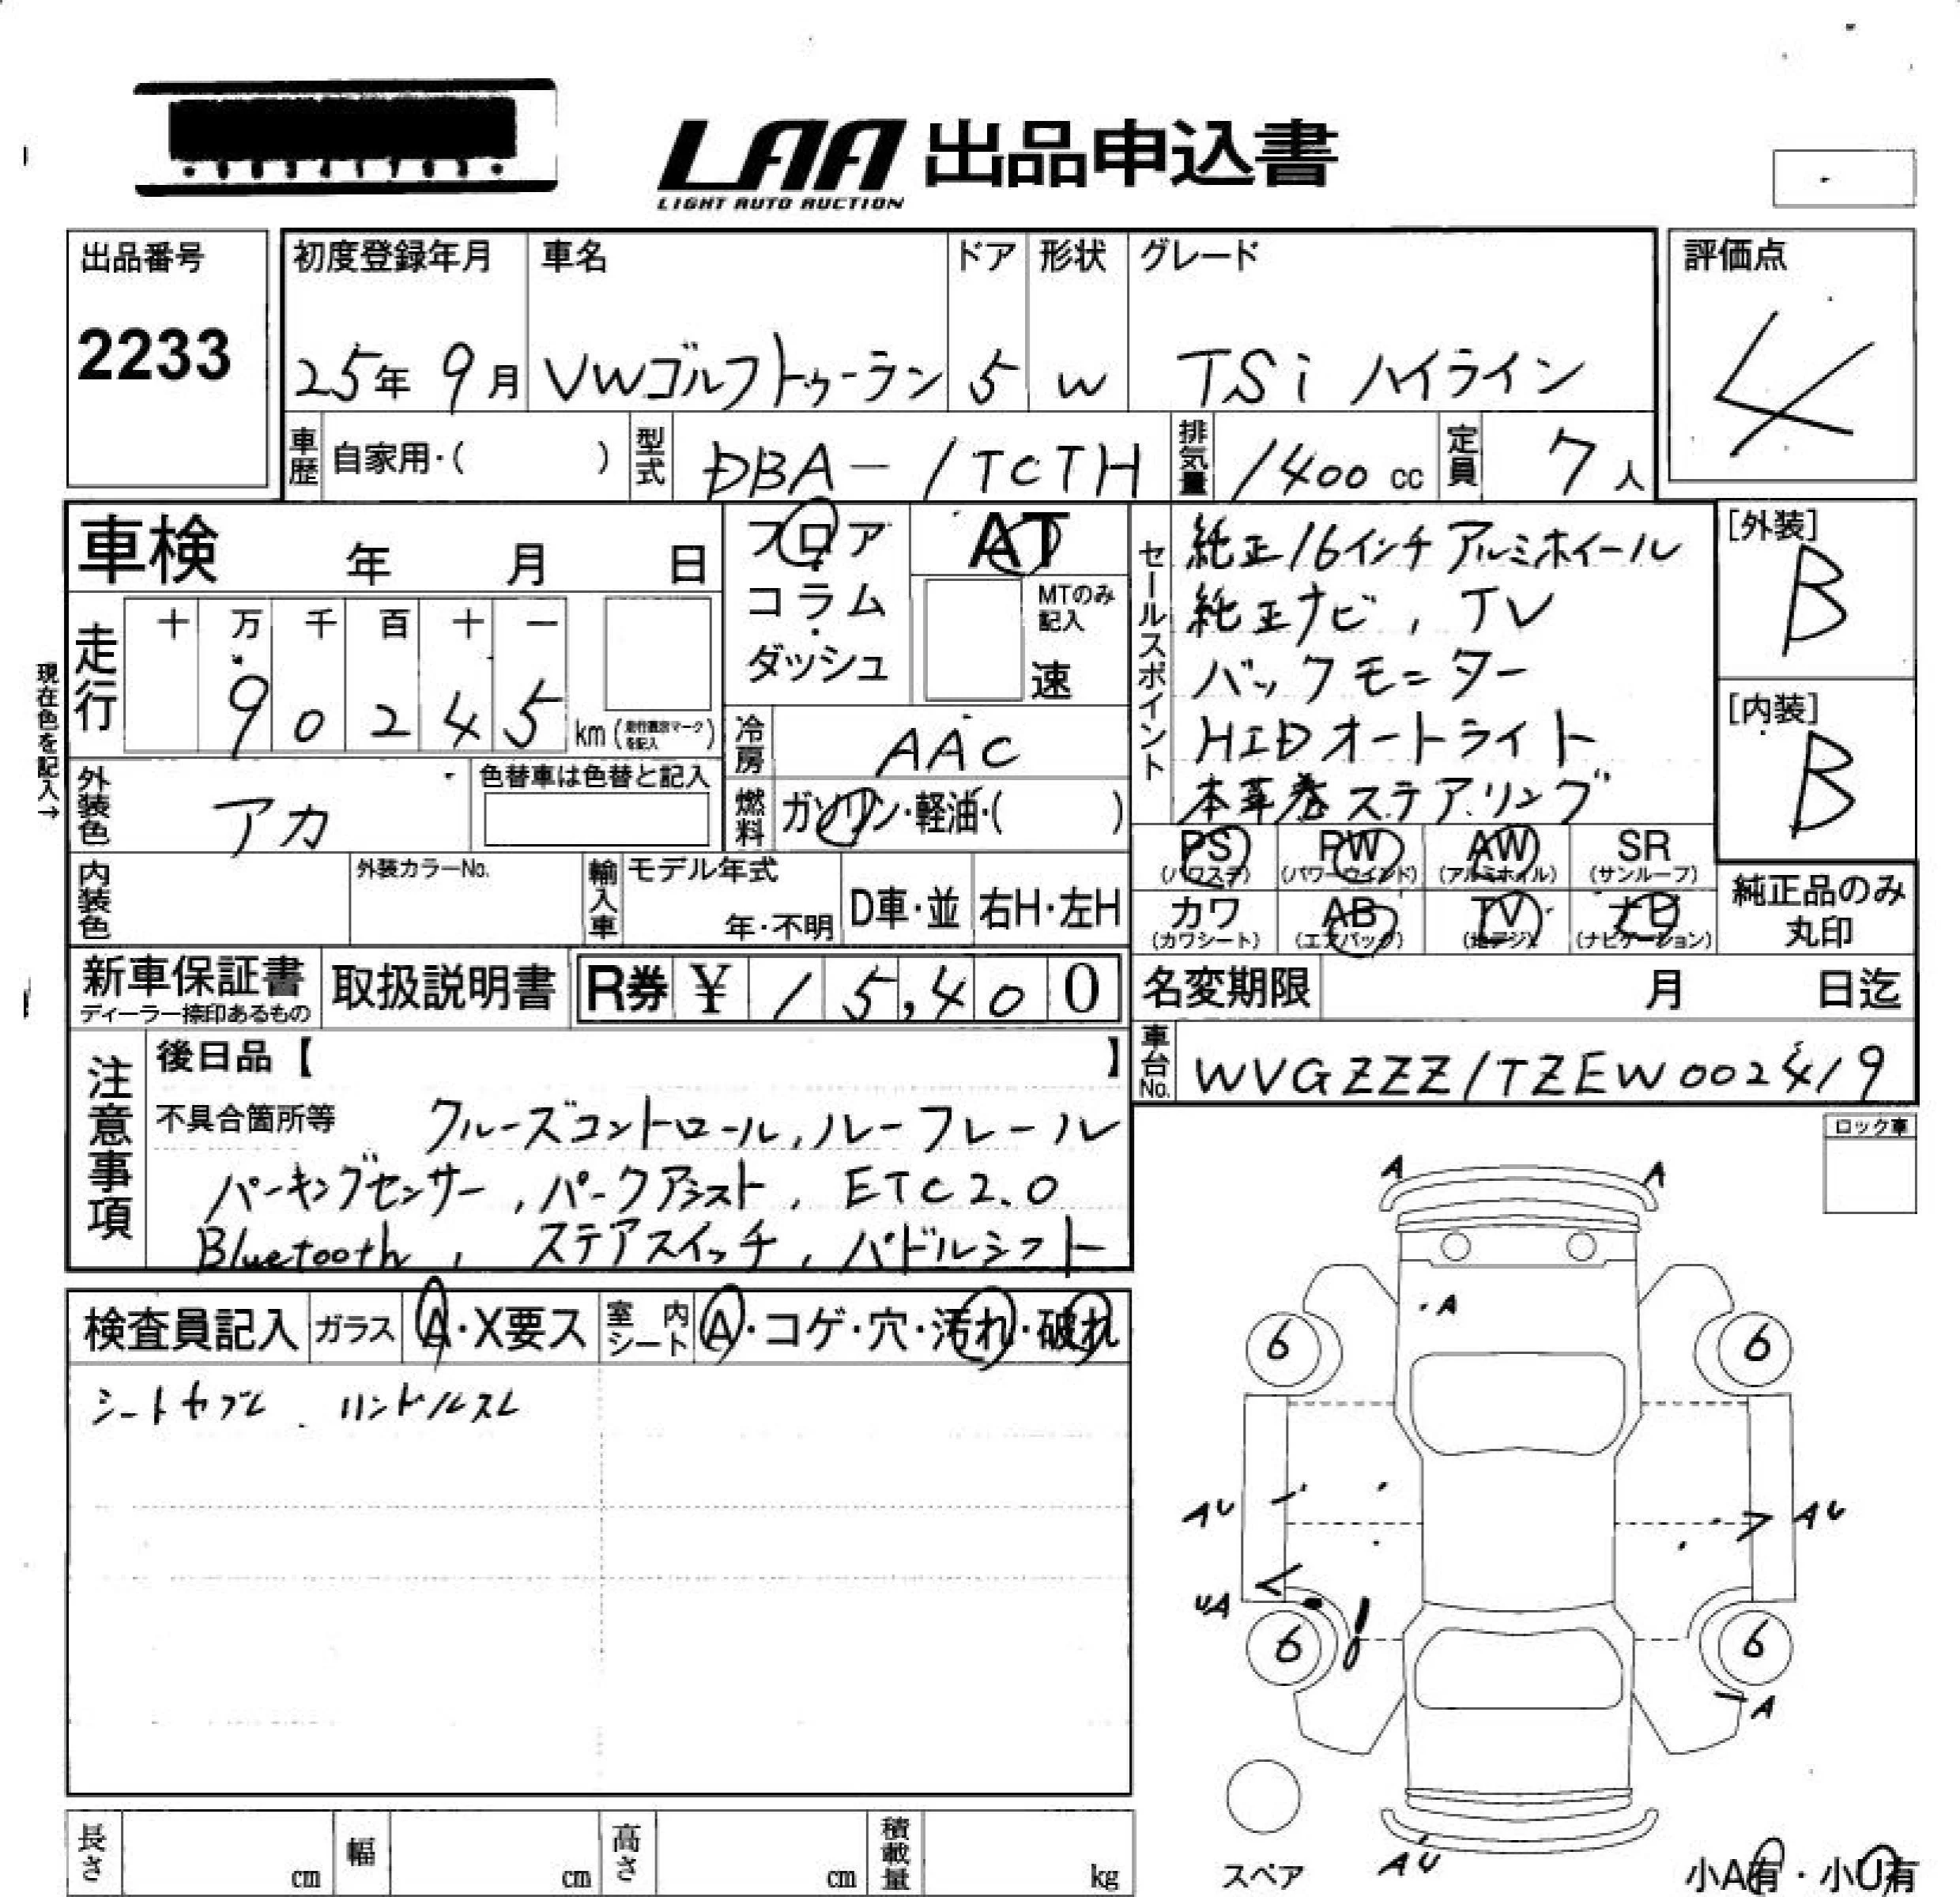 LAA 出品申込書
LIGHT AUTO AUCTION
出品番号
2233
初度登録年月
25年 9月
車名
VWゴルフトゥーラン
ドア
5
形状
W
グレード
TSi ハイライン
評価点
4
車歴 自家用・( )
型式 DBA-1TCTH
排気量 1400 cc
定員 7人
車検 年 月 日
フロア・コラム・ダッシュ
AT
MTのみ記入
速
走行
十 万 千 百 十 一
9 0 2 4 5 km
現在色を記入→
冷房 AAC
外装色 アカ
色替車は色替と記入
燃料 ガソリン・軽油・( )
内装色
外装カラーNo.
輸入車
モデル年式
年・不明
D車・並
右H・左H
セールスポイント
純正16インチアルミホイール
純正ナビ, TV
バックモニター
HIDオートライト
本革巻ステアリング
[外装]
B
[内装]
B
PS (パワステ)
PW (パワーウインド)
AW (アルミホイル)
SR (サンルーフ)
カワ (カワシート)
AB (エアバック)
TV (地デジ)
ナビ (ナビゲーション)
純正品のみ
丸印
新車保証書
ディーラー捺印あるもの
取扱説明書
R券 ¥ 15,400
名変期限 月 日迄
車台No. WVGZZZ1TZEW002419
注意事項
後日品【 】
不具合箇所等 クルーズコントロール, ルーフレール
パーキングセンサー, パークアシスト, ETC2.0
Bluetooth, ステアスイッチ, パドルシフト
ロック車
検査員記入
ガラス A・X要ス
室内シート A・コゲ・穴・汚れ・破れ
シートヤブレ ハンドルスレ
A A
A
6 6
AU AU
UA
6 6
A
AU
スペア
小A有・小U有
長さ cm
幅 cm
高さ cm
積載量 kg